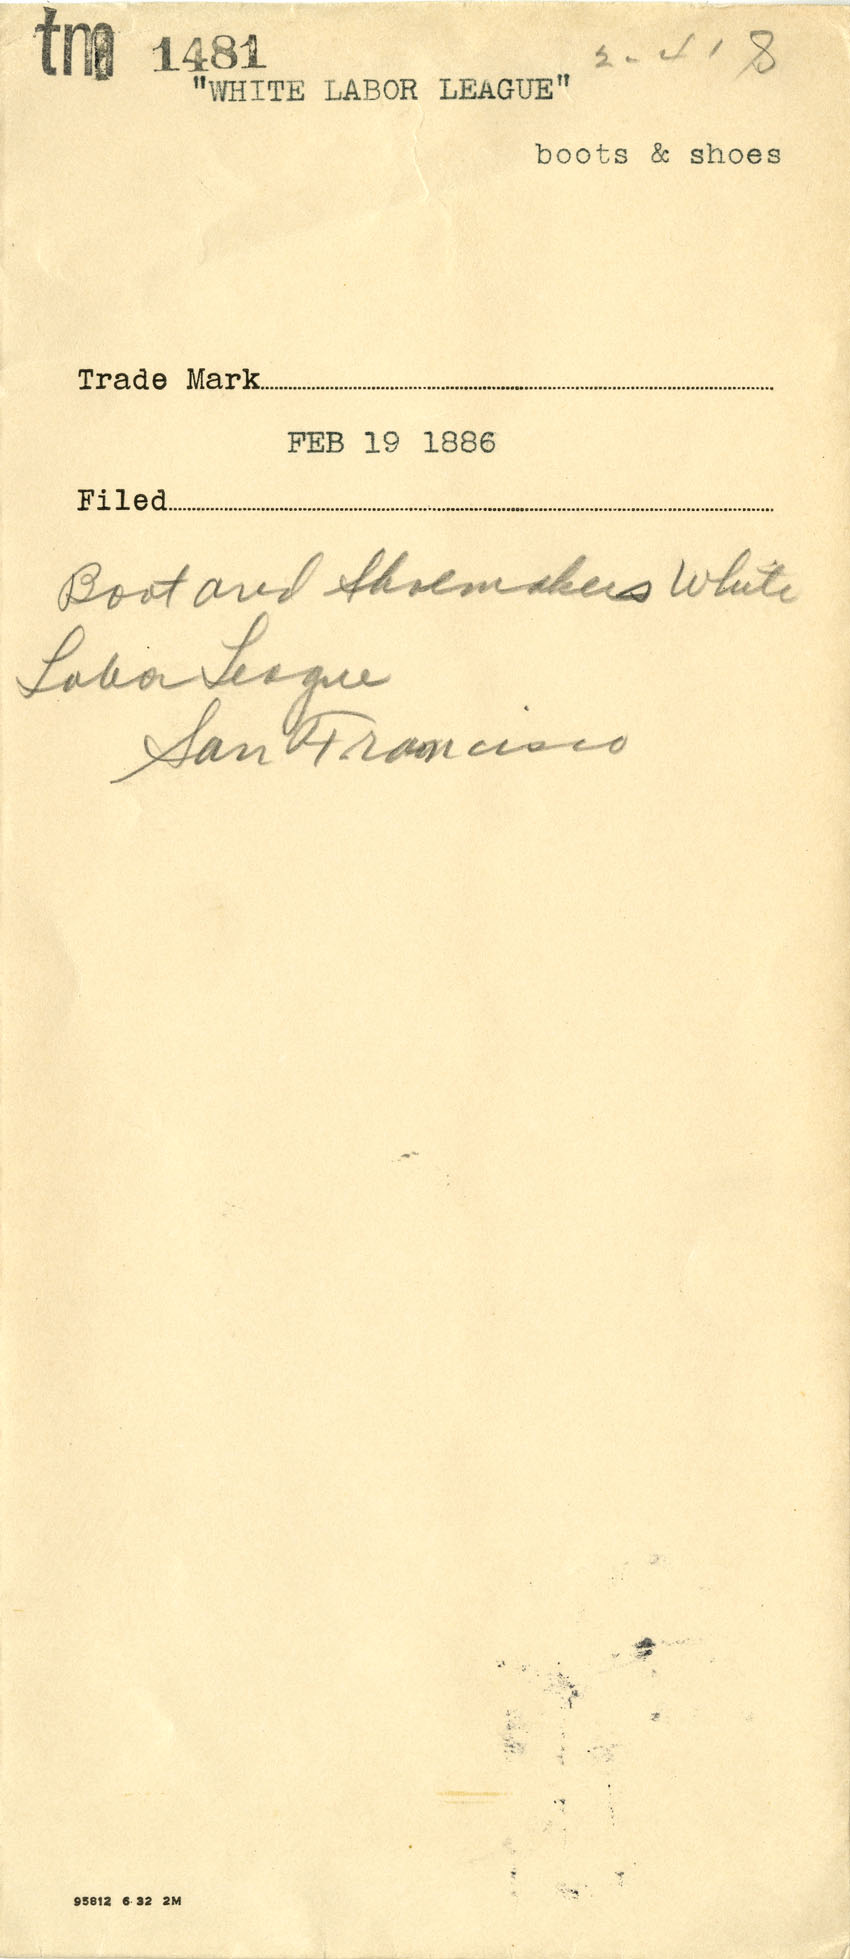 tm 1481
"WHITE LABOR LEAGUE"
boots & shoes
Trade Mark
FEB 19 1886
Filed
Boot and Shoemakers White
Labor League
San Francisco
95812 6-32 2M